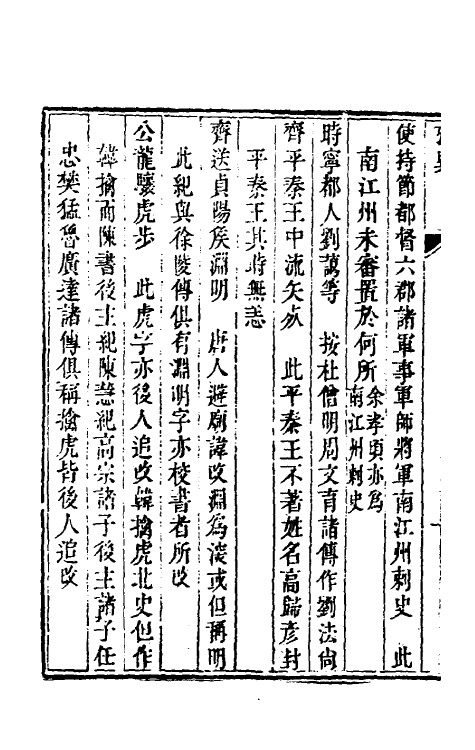 使持節都督六郡諸軍事軍師將軍南江州刺史　此
南江州未審置於何所余孝頃亦為南江州刺史
時寧都人劉藹等　按杜僧明周文育諸傳作劉法尚
齊平秦王中流矢死　此平秦王不著姓名高歸彥封
平秦王其時無恙
齊送貞陽侯淵明　唐人避廟諱改淵為深或但稱明
此紀與徐陵傳俱有淵明字亦校書者所改
公龍驤虎步　此虎字亦後人追改韓擒虎北史但作
韓擒而陳書後主紀陳慧紀高宗諸子後主諸子任
忠樊猛魯廣達諸傳俱稱擒虎皆後人追改